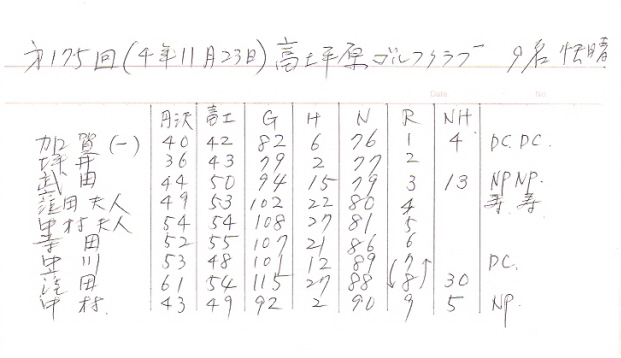 第175回(4年11月23日)高土平原ゴルフクラブ 9名 快晴
Date No.
丹沢 高士 G H N R NH
加賀(一) 40 42 82 6 76 1 4 DC. DC.
坪井 36 43 79 2 77 2
武田 44 50 94 15 79 3 13 NP NP.
窪田夫人 49 53 102 22 80 4 寿 寿
中村夫人 54 54 108 27 81 5
寺田 52 55 107 21 86 6
中川 53 48 101 12 89 7 DC.
窪田 61 54 115 27 88 8 30
中村 43 49 92 2 90 9 5 NP.